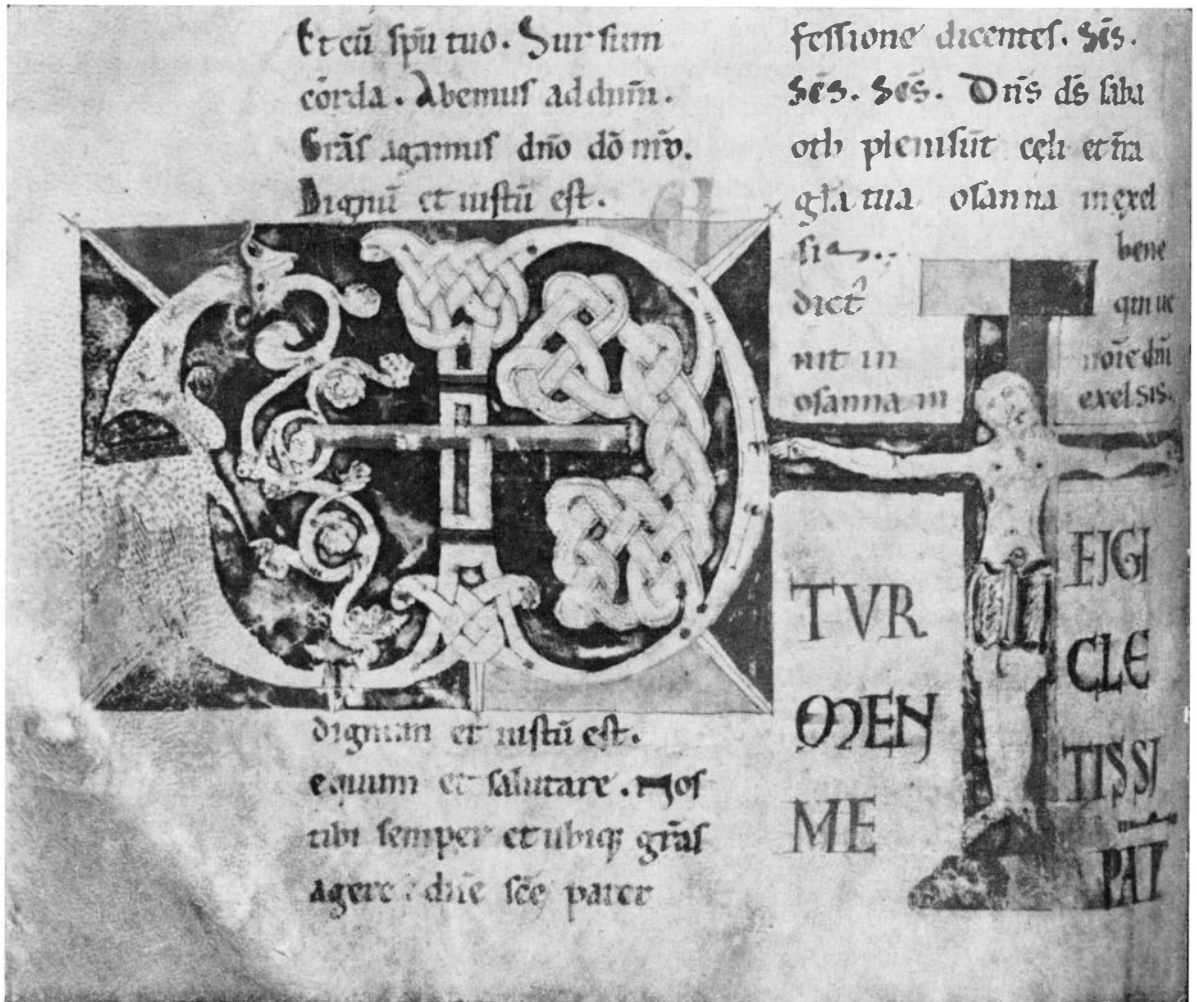 Et cū spū tuo. Sursum
corda. Abemus ad dnm̄.
Grās agamus dño dō nr̄o.
Dignū et iustū est.
dignum et iustū est.
equum et salutare. Nos
tibi semper et ubiq; grās
agere : dñe sc̄e pater
fessione dicentes. Sc̄s.
Sc̄s. Sc̄s. Dñs ds̄ saba
oth pleni sūt cęli et tr̄a
gl̄a tua osanna in exęl
sis. bene
dict᷒ qui ue
nit in noīe dñi
osanna in exelsis.
TE IGI
TVR CLE
MEN TISSI
ME PAT